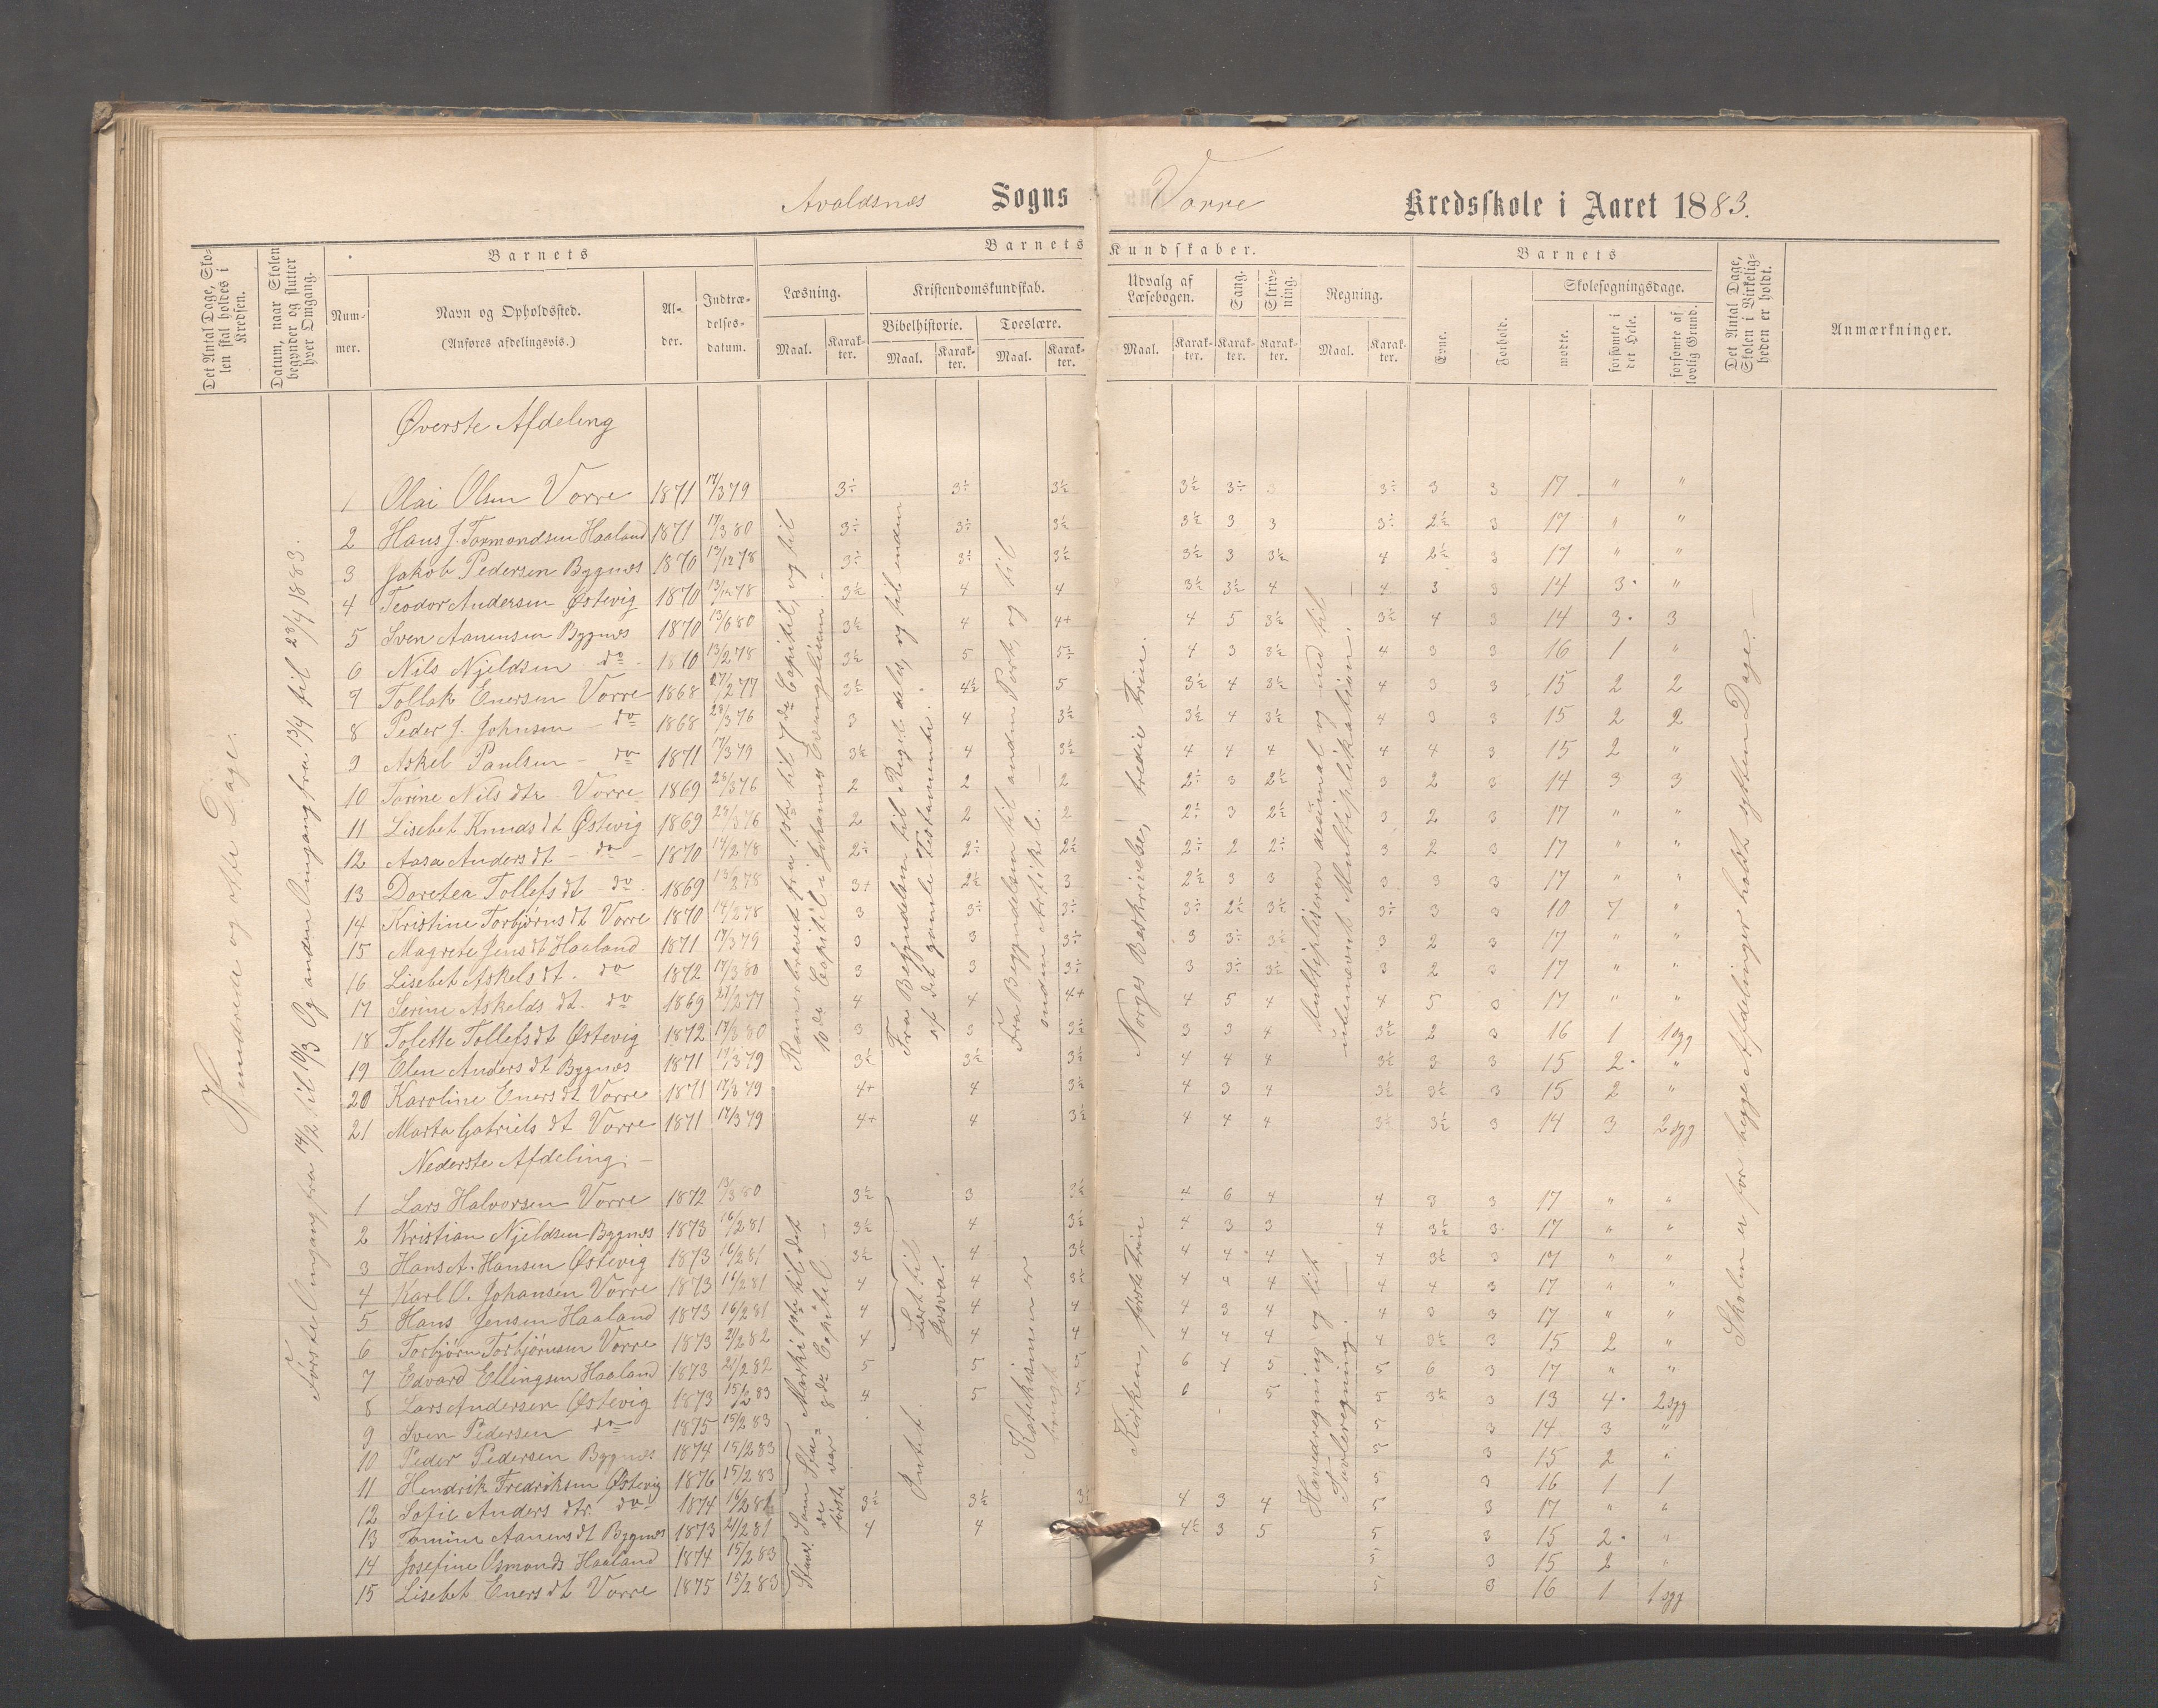 Avaldsnes Sogns Vorre Kredsskole i Aaret 1883.
Det Antal Dage, Skolen skal holdes i Kredsen.
Datum, naar Skolen begynder og slutter hver Omgang.
Barnets
Nummer.
Navn og Opholdssted.
(Anføres afdelingsvis.)
Alder.
Indtrædelsesdatum.
Barnets Kundskaber.
Læsning.
Maal.
Karakter.
Kristendomskundskab.
Bibelhistorie.
Maal.
Karakter.
Troeslære.
Maal.
Karakter.
Udvalg af Læsebogen.
Maal.
Karakter.
Sang.
Karakter.
Skrivning.
Karakter.
Regning.
Maal.
Karakter.
Barnets
Evne.
Forhold.
Skolesøgningsdage.
mødte.
forsømte i det Hele.
forsømte af lovlig Grund.
Det Antal Dage, Skolen i Virkeligheden er holdt.
Anmærkninger.
Hundrede og otte Dage.
Første Omgang fra 14/2 til 10/3 Og anden Omgang fra 13/4 til 23/4 1883.
Øverste Afdeling
1 Olai Olsen Vorre 1871 17/3 79 3÷ 3÷ 3½ 3½ 3÷ 3 3÷ 3 3 17 " "
2 Hans J. Tormondsen Haaland 1871 17/3 80 3÷ 3÷ 3½ 3½ 3 3 3÷ 2½ 3 17 " "
3 Jakob Pedersen Bygnes 1870 13/12 78 3÷ 3÷ 3½ 3½ 3 3½ 4 2½ 3 17 " "
4 Teodor Andersen Østevig 1870 13/12 78 3½ 4 4 3½ 3½ 4 4 3 3 14 3 "
5 Sven Aanensen Bygnes 1870 13/6 80 3½ 4 4+ 4 5 3½ 3½ 4 3 14 3 3
6 Nils Njeldsen do 1870 13/2 78 3½ 5 5÷ 4 3 3½ 4 3 3 16 1 "
7 Tollak Enersen Vorre 1868 27/2 77 3½ 4½ 5 3½ 4 3½ 4 3 3 15 2 2
8 Peder J. Johnsen do 1868 28/3 76 3 4 3½ 3½ 4 3½ 4 3 3 15 2 2
9 Askel Paulsen do 1871 17/3 79 3½ 4 3½ 4 4 4 4 4 3 15 2 "
10 Torine Nils dtr Vorre 1869 28/3 76 2 2 2 2÷ 3 2½ 3 2 3 14 3 3
11 Lisebet Knuds dt Østevig 1869 28/3 76 2 2 2 2÷ 3 2½ 3 2 3 17 " "
12 Aasa Anders dt do 1870 14/2 78 2÷ 2÷ 2½ 2÷ 2 2÷ 3 2 3 17 " "
13 Dorotea Tollefs dt do 1869 13/2 78 3+ 2½ 3 2½ 3 3 3 3 3 17 " "
14 Kristine Torbjørns dt Vorre 1870 14/2 78 3 3÷ 3÷ 3÷ 2½ 3½ 3÷ 3 3 10 7 "
15 Magrete Jens dt Haaland 1871 17/3 79 3 3 3÷ 3 3÷ 3½ 3 2 3 17 " "
16 Lisebet Askels dt. do 1872 17/3 80 3 3 3÷ 3 3÷ 3½ 3 2 3 17 " "
17 Serine Askelds dt. do 1869 27/2 77 4 4 4+ 4 5 4 4 5 3 17 " "
18 Tolette Tollefs dt Østevig 1872 17/3 80 3 3 3½ 3 3 4 3½ 2 3 16 1 1 syg
19 Elen Anders dt Bygnes 1871 17/3 79 3½ 3½ 3½ 4 4 4 3½ 3 3 15 2 "
20 Karoline Eners dt Vorre 1871 17/3 79 4+ 4 3½ 4 3 4 3½ 3½ 3 15 2 "
21 Marta Gabriels dt Vorre 1871 17/3 79 4+ 4 3½ 4 4 4 3½ 3½ 3 14 3 2 syg
Romerbrevet fra 1ste til 7de Capitel, og til 10de Capitel i Johannes Evangelium.
Fra Begyndelsen til Rigets deling og til enden af det gamle Testamente.
Fra Begyndelsen til anden Part, og til anden Artikel.
Norges Beskrivelse, tredie Trin.
Multiplisera desimal og med til ubenævnt Multiplikation.
Skolen er for begge Afdelinger holdt sytten Dage.
Nederste Afdeling.
1 Lars Halvorsen Vorre 1872 13/3 80 3½ 3 3½ 4 6 4 4 3 3 17 " "
2 Kristian Njeldsen Bygnes 1873 16/2 81 3½ 4 3½ 4 3 3 4 3½ 3 17 " "
3 Hans A. Hansen Østevig 1873 16/2 81 3½ 4 3½ 4 4 4 4 3½ 3 17 " "
4 Karl O. Johansen Vorre 1873 16/2 81 4 4 3½ 4 4 4 4 4 3 17 " "
5 Hans Jensen Haaland 1873 16/2 81 4 4 4 4 3 4 4 3 3 17 " "
6 Torbjørn Torbjørnsen Vorre 1873 21/2 82 4 4 4 4 4 4 4 3½ 3 15 2 "
7 Edvard Ellingsen Haaland 1873 21/2 82 5 5 5 6 4 5 5 6 3 17 " "
8 Lars Andersen Østevig 1873 15/2 83 4 5 5 6 5 5 3½ 3 13 4 2 syg
9 Sven Pedersen do 1875 15/2 83 5 3 14 3 "
10 Peder Pedersen Bygnes 1874 15/2 83 5 3 15 2 "
11 Hendrik Fredriksen Østevig 1876 15/2 83 5 3 16 1 1
12 Sofie Anders dtr. do 1874 16/2 82 3½ 3½ 3½ 4 3 4 5 3 17 " "
13 Tomine Aanens dt Bygnes 1873 21/2 81 4 4 4½ 3 5 5 3 15 2 "
14 Josefine Osmonds Haaland 1874 15/2 83 5 3 15 2 "
15 Lisebet Eners dt Vorre 1875 15/2 83 5 3 16 1 1 syg
Marki 1ste til det 8de Capitel
Stave. Som de første var
Lært til Josva.
Intet.
Katekismen er brugt
Kirken, første Trin
Hovedregning og lidt Tavleregning.